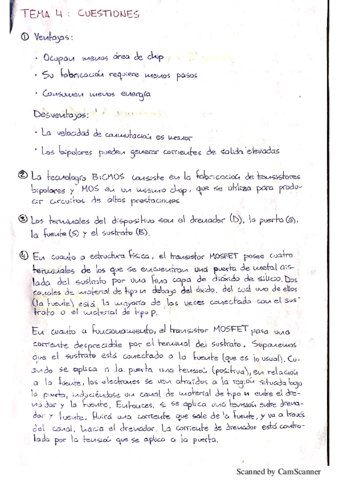 TEMA 4: CUESTIONES
① Ventajas:
· Ocupan menos área de chip
· Su fabricación requiere menos pasos
· Consumen menos energía
Desventajas:
· La velocidad de conmutación es menor
· Los bipolares pueden generar corrientes de salida elevadas
② La tecnología BiCMOS consiste en la fabricación de transistores
bipolares y MOS en un mismo chip, que se utiliza para produ-
cir circuitos de altas prestaciones
③ Los terminales del dispositivo son el drenador (D), la puerta (G),
la fuente (S) y el sustrato (B).
④ En cuanto a estructura física, el transistor MOSFET posee cuatro
terminales de los que se encuentran una puerta de metal ais-
lada del sustrato por una fina capa de dióxido de silicio. Dos
canales de material de tipo n debajo del óxido, del cual uno de ellos
(la fuente) está la mayoría de las veces conectada con el sus-
trato o el material de tipo p.
En cuanto a funcionamiento, el transistor MOSFET pasa una
corriente despreciable por el terminal del sustrato. Suponemos
que el sustrato está conectado a la fuente (que es lo usual). Cu-
ando se aplica a la puerta una tensión (positiva), en relación
a la fuente, los electrones se ven atraídos a la región situada bajo
la puerta, induciéndose un canal de material de tipo n entre el dre-
nador y la fuente. Entonces, si se aplica una tensión entre drena-
dor y fuente, fluirá una corriente que sale de la fuente, y va a través
del canal, hacia el drenador. La corriente de drenador está contro-
lada por la tensión que se aplica a la puerta.
Scanned by CamScanner